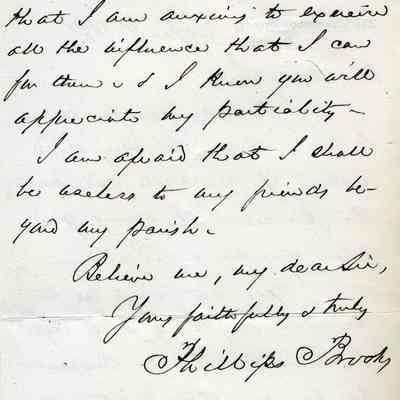 that I am anxious to exercise
all the influence that I can
for them & I know you will
appreciate my partiality -
I am afraid that I shall
be useless to my friends be-
yond my parish -
Believe me, my dear Sir,
Yours faithfully & truly
Phillips Brooks